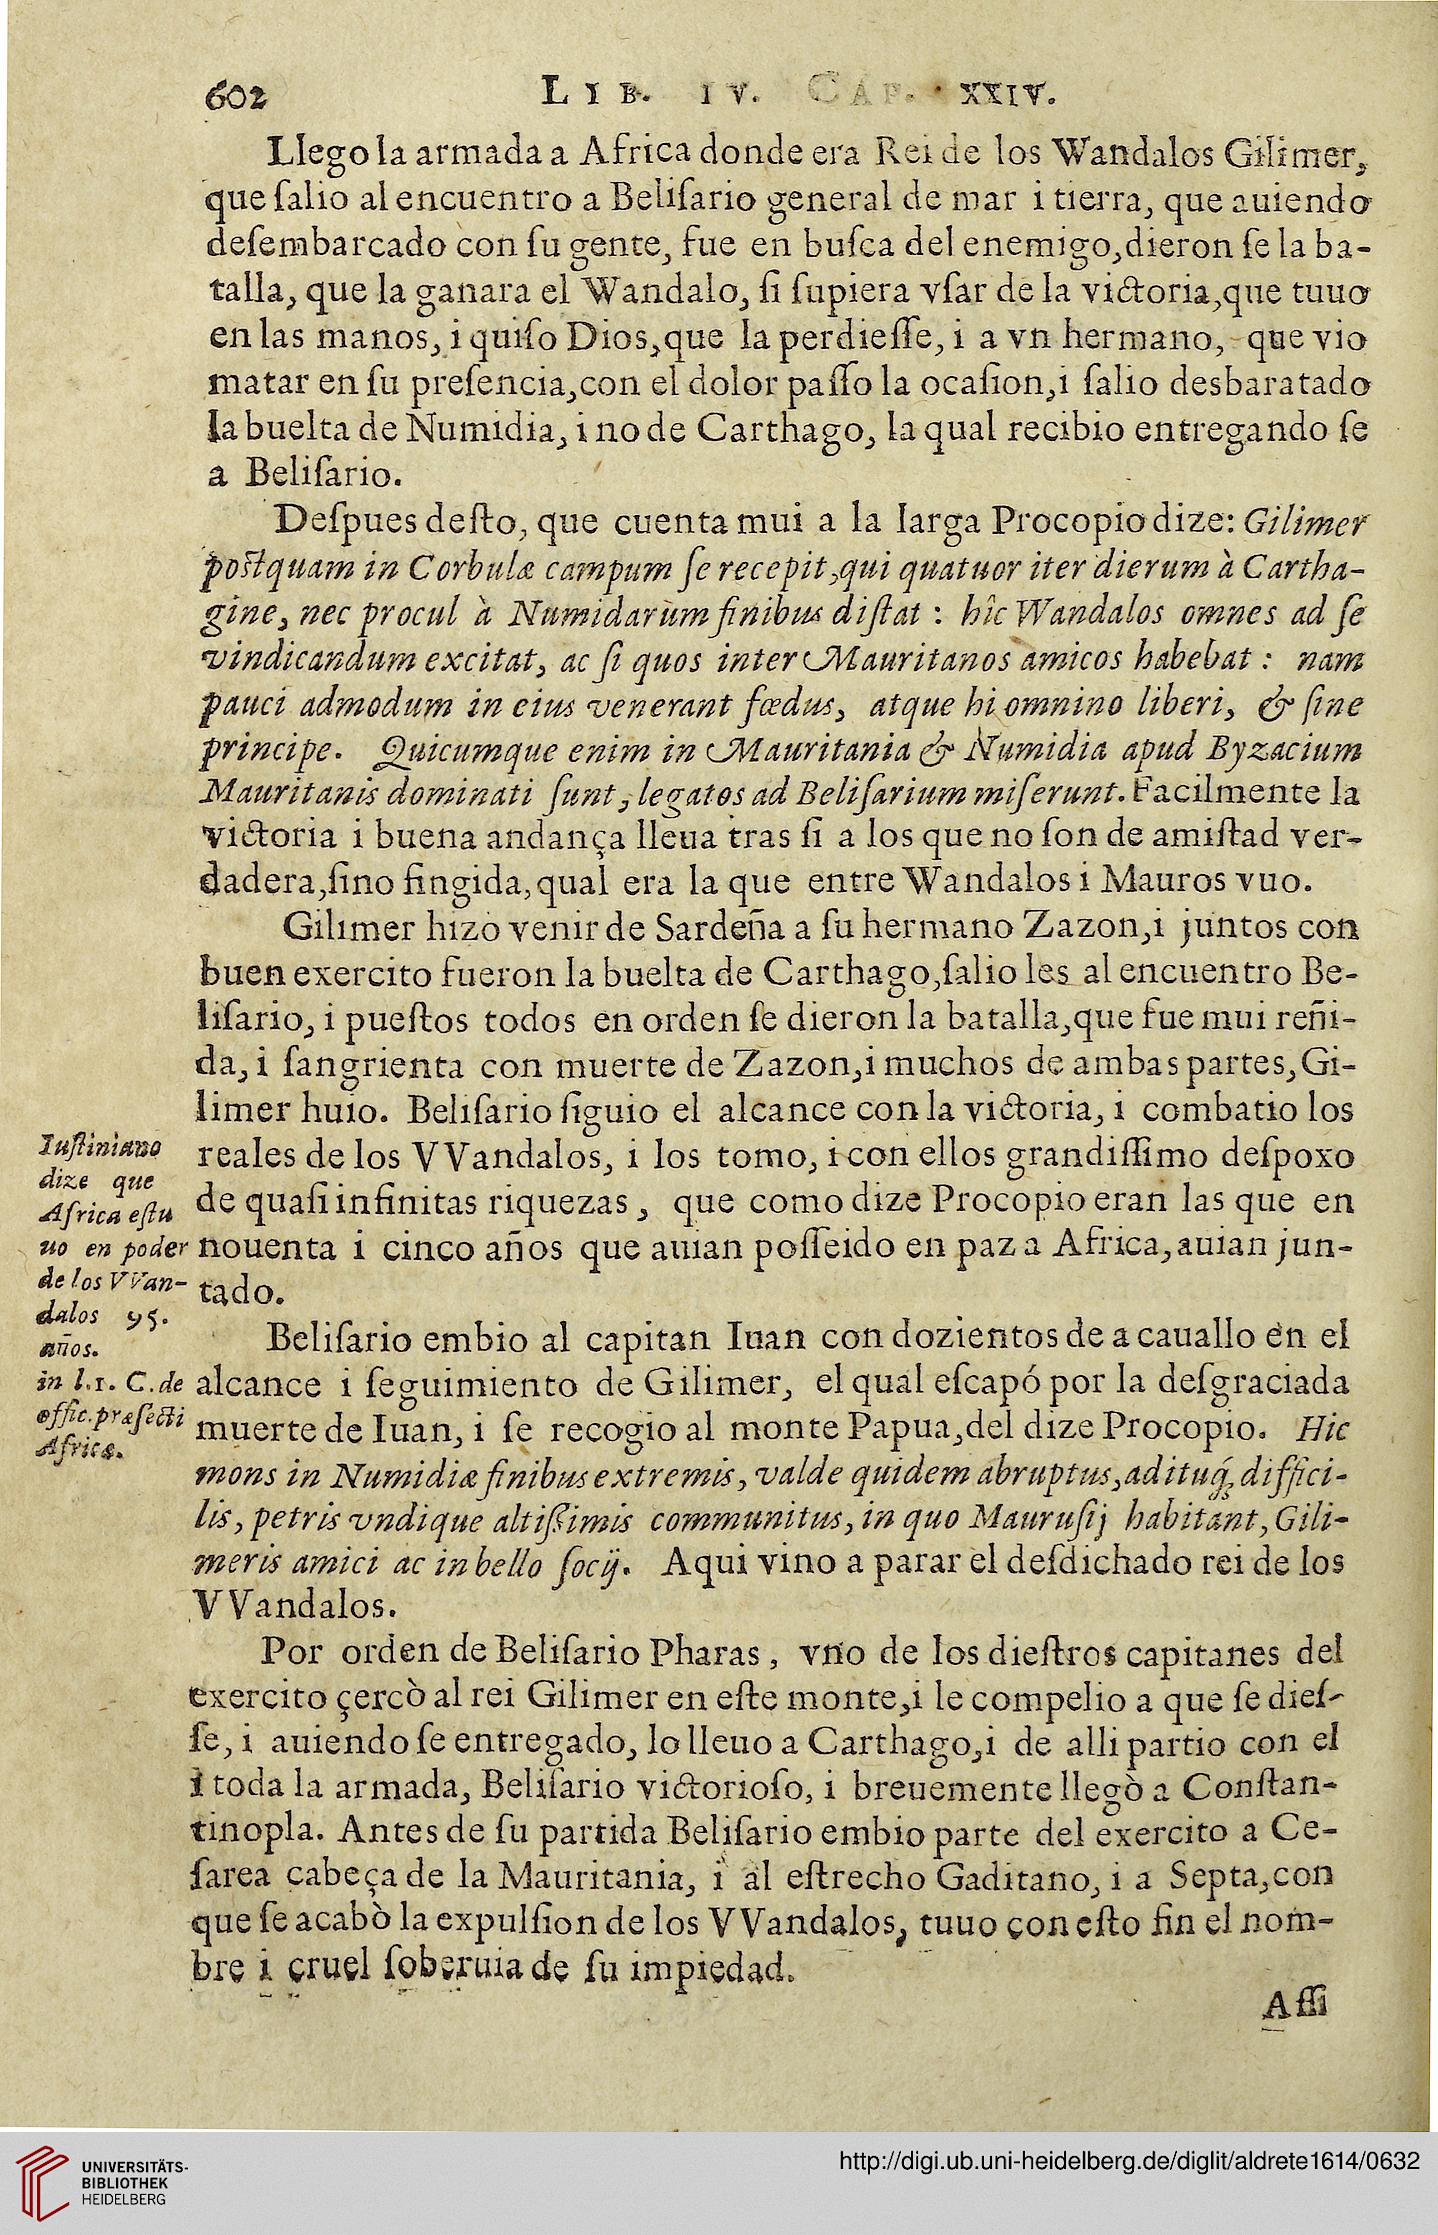 602 LIB. IV. CAP. XXIV.
Llego la armada a Africa donde era Rei de los Wandalos Gilimer,
que ſalio al encuentro a Beliſario general de mar i tierra, que auiendo
deſembarcado con ſu gente, fue en buſca del enemigo, dieron ſe la ba-
talla, que la ganara el Wandalo, ſi ſupiera vſar de la victoria, que tuuo
en las manos, i quiſo Dios, que la perdieſſe, i a vn hermano, que vio
matar en ſu preſencia, con el dolor paſſo la ocaſion, i ſalio desbaratado
la buelta de Numidia, i no de Carthago, la qual recibio entregando ſe
a Beliſario.
Deſpues deſto, que cuenta mui a la larga Procopio dize: Gilimer
poſtquam in Corbulæ campum ſe recepit, qui quatuor iter dierum à Cartha-
gine, nec procul à Numidarum finibus diſtat : hîc Wandalos omnes ad ſe
vindicandum excitat, ac ſi quos inter Mauritanos amicos habebat : nam
pauci admodum in eius venerant fœdus, atque hi omnino liberi, & ſine
principe. Quicumque enim in Mauritania & Numidia apud Byzacium
Mauritanis dominati ſunt, legatos ad Beliſarium miſerunt. Facilmente la
victoria i buena andança lleua tras ſi a los que no ſon de amiſtad ver-
dadera, ſino fingida, qual era la que entre Wandalos i Mauros vuo.
Gilimer hizo venir de Sardeña a ſu hermano Zazon, i juntos con
buen exercito fueron la buelta de Carthago, ſalio les al encuentro Be-
liſario, i pueſtos todos en orden ſe dieron la batalla, que fue mui reñi-
da, i ſangrienta con muerte de Zazon, i muchos de ambas partes, Gi-
limer huio. Beliſario ſiguio el alcance con la victoria, i combatio los
reales de los VVandalos, i los tomo, i con ellos grandiſſimo deſpoxo
de quaſi infinitas riquezas, que como dize Procopio eran las que en
nouenta i cinco años que auian poſſeido en paz a Africa, auian jun-
tado.
Iuſtiniano
dize que
Africa eſtu
uo en poder
de los VVan-
dalos 95.
años.
in l.1. C. de
offic. præfecti
Africæ.
Beliſario embio al capitan Iuan con dozientos de a cauallo en el
alcance i ſeguimiento de Gilimer, el qual eſcapó por la deſgraciada
muerte de Iuan, i ſe recogio al monte Papua, del dize Procopio. Hic
mons in Numidiæ finibus extremis, valde quidem abruptus, adituq́; diffici-
lis, petris vndique altiſsimis communitus, in quo Mauruſij habitant, Gili-
meris amici ac in bello ſocij. Aqui vino a parar el deſdichado rei de los
VVandalos.
Por orden de Beliſario Pharas, vno de los dieſtros capitanes del
exercito çercò al rei Gilimer en eſte monte, i le compelio a que ſe dieſ-
ſe, i auiendo ſe entregado, lo lleuo a Carthago, i de alli partio con el
i toda la armada, Beliſario victorioſo, i breuemente llegò a Conſtan-
tinopla. Antes de ſu partida Beliſario embio parte del exercito a Ce-
ſarea cabeça de la Mauritania, i al eſtrecho Gaditano, i a Septa, con
que ſe acabò la expulſion de los VVandalos, tuuo con eſto fin el nom-
bre i cruel ſoberuia de ſu impiedad.
Aſſi
UNIVERSITÄTS-
BIBLIOTHEK
HEIDELBERG
http://digi.ub.uni-heidelberg.de/diglit/aldrete1614/0632